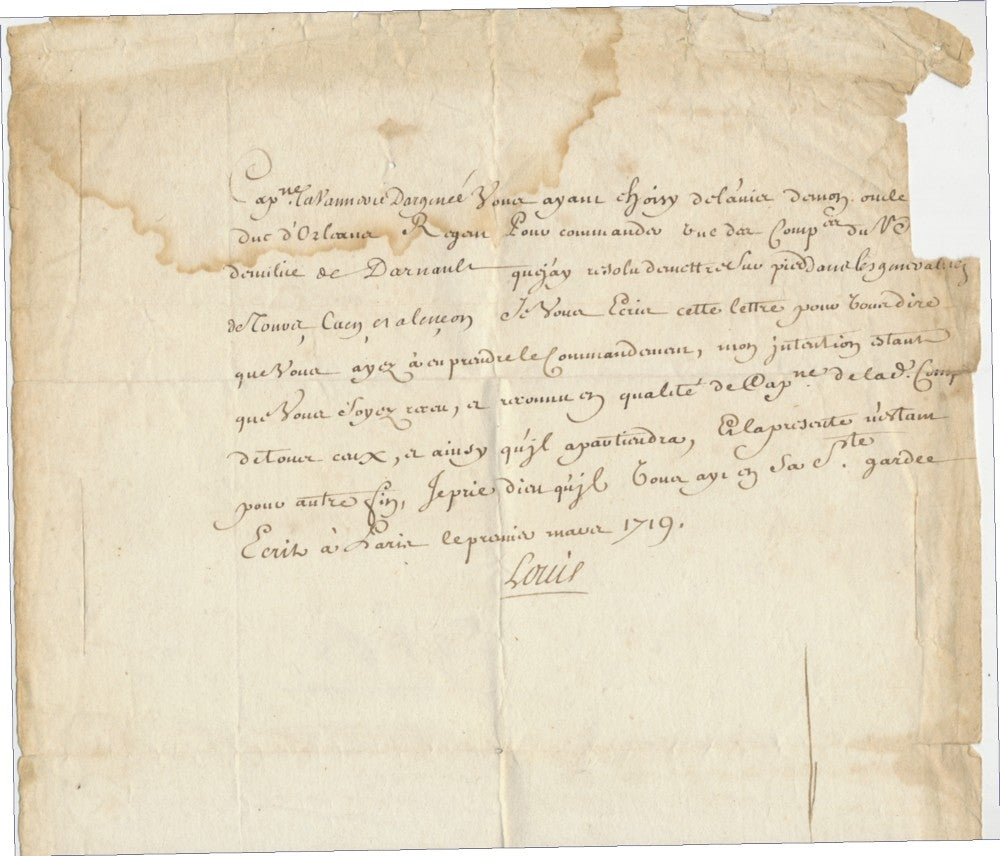 Cap.ne La Vannerie Dargencé Vous ayant choisy de l'avis de mon oncle
duc d'Orleans Regent Pour commander une des Comp.es du
de milice de Darnault que j'ay resolu de mettre sur pied dans les generalitez
de Rouen, Caen, et alençon Je Vous Ecris cette lettre pour Vous dire
que Vous ayez à en prendre le Commandement, mon intention estant
que Vous soyez receu, et reconnu en qualité de Cap.ne de lad. Comp
de tous ceux, et ainsy qu'jl apartiendra, Et la présente n'estant
pour autre fin, Je prie dieu qu'jl Vous ayt en sa S.te garde
Ecrit à Paris le premier mars 1719.
Louis